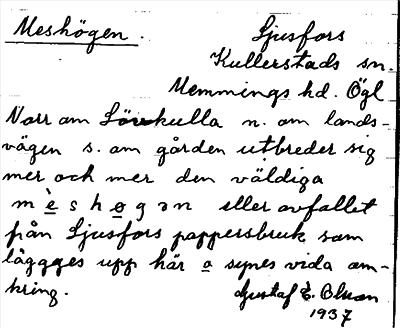 Meshögen.
Ljusfors
Kullerstads sn.
Memmings hd. Ögl
Norr om Lövekulla n. om lands-
vägen s. om gården utbreder sig
mer och mer den väldiga
mè s h ø g ən eller avfallet
från Ljusfors pappersbruk som
läggges upp här o synes vida om-
kring.
Gustaf E. Olson
1937